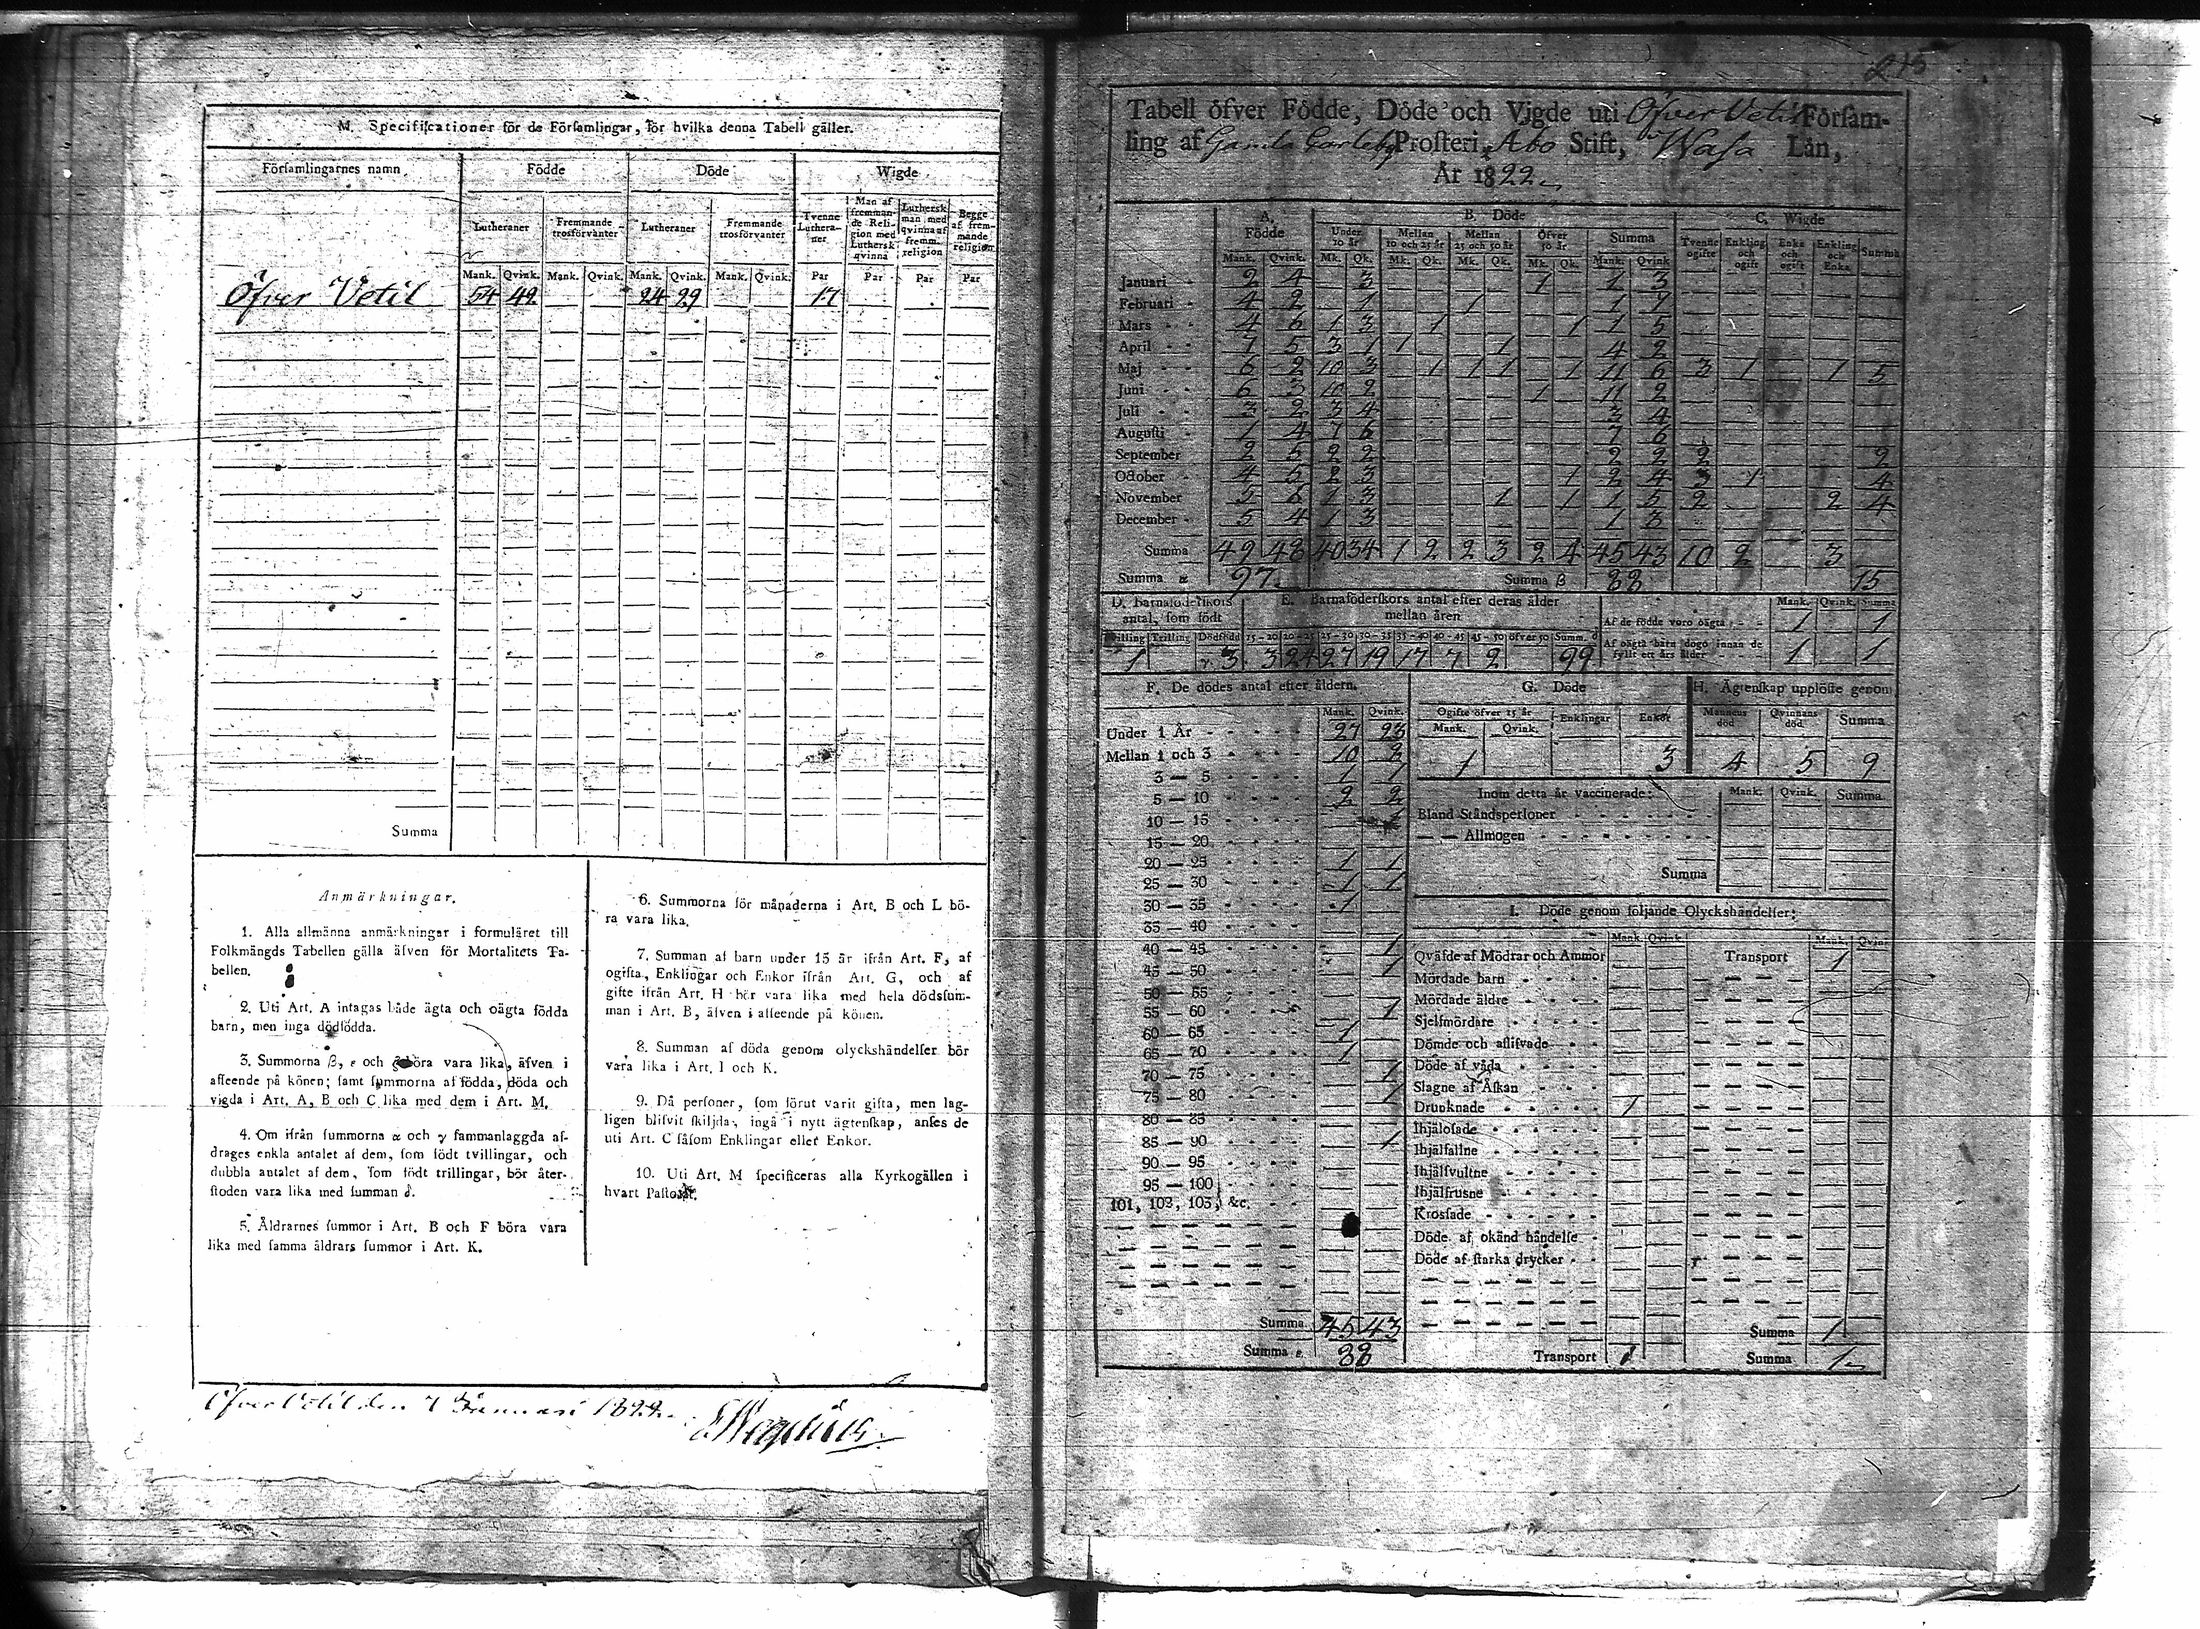 M. Specificationer för de Församlingar, för hvilka denna Tabell gäller.
Församlingarnes namn Födde Döde Wigde
Lutheraner Fremmande trosförvanter Lutheraner Fremmande trosförvanter Tvenne Lutheraner Man af fremmande Religion med Luthersk qvinna Luthersk man med qvinna af fremm. religion Begge af fremmande religion
Mank. Qvink. Mank. Qvink. Mank. Qvink. Mank. Qvink. Par Par Par Par
Öfver Vetil 54 42 24 29 17
Summa
Anmärkningar.
1. Alla allmänna anmärkningar i formuläret till
Folkmängds Tabellen gälla äfven för Mortalitets Ta-
bellen.
2. Uti Art. A intagas både ägta och oägta födda
barn, men inga dödfödda.
3. Summorna β, ε och böra vara lika, äfven i
afseende på könen; samt summorna af födda, döda och
vigda i Art. A, B och C lika med dem i Art. M.
4. Om ifrån summorna α och γ sammanlaggda af-
drages enkla antalet af dem, som födt tvillingar, och
dubbla antalet af dem, som födt trillingar, bör åter-
stoden vara lika med summan δ.
5. Åldrarnes summor i Art. B och F böra vara
lika med samma åldrars summor i Art. K.
6. Summorna för månaderna i Art. B och L bö-
ra vara lika.
7. Summan af barn under 15 år ifrån Art. F, af
ogifta, Enklingar och Enkor ifrån Art. G, och af
gifte ifrån Art. H bör vara lika med hela dödssum-
man i Art. B, äfven i afseende på könen.
8. Summan af döda genom olyckshändelser bör
vara lika i Art. I och K.
9. Då personer, som förut varit gifta, men lag-
ligen blifvit skiljda, ingå i nytt ägtenskap, anses de
uti Art. C såsom Enklingar eller Enkor.
10. Uti Art. M specificeras alla Kyrkogällen i
hvart Pastorat.
Öfver Vetil den 7 Januari
215
Tabell öfver Födde, Döde och Vigde uti Öfver Vetil Försam-
ling af Gamla Carleby Prosteri, Åbo Stift, Wasa Län,
År 1822
A. Födde B. Döde C. Wigde
Under 10 år Mellan 10 och 25 år Mellan 25 och 50 år Öfver 50 år Summa Tvenne ogifte Enkling och ogift Enka och ogift Enkling och Enka Summa
Mank. Qvink. Mk. Qk. Mk. Qk. Mk. Qk. Mk. Qk. Mank. Qvink
Januari 2 4 3 1 1 3
Februari 4 2 1 1 1
Mars 4 6 1 3 1 1 1 5
April 7 5 3 1 1 1 4 2
Maj 6 2 10 3 1 1 1 1 11 6 3 1 1 5
Juni 6 10 2 1 11 2
Juli 3 2 3 4 3 4
Augusti 1 4 7 6 7 6
September 2 5 2 2 2 2 2 2
October 4 5 2 3 1 2 4 3 1 4
November 6 1 3 1 1 1 5 2 2 4
December 5 4 1 3 1 3
Summa 49 48 40 34 1 2 2 3 2 4 45 43 10 2 3
Summa α 97. Summa β 88 15
D. Barnaföderskors antal, som födt
E. Barnaföderskors antal efter deras ålder mellan åren
Mank. Qvink. Summa
Tvilling Trilling Dödfödd 15-20 20-25 25-30 30-35 35-40 40-45 45-50 öfver 50 Summ. δ
1 3 3 24 27 19 17 7 2 99
Af de födde voro oägta 1 1
Af oägta barn dogo innan de fyllt ett års ålder 1 1
F. De dödes antal efter åldern.
Mank. Qvink.
Under 1 År 27 23
Mellan 1 och 3 10 8
3 — 5 1 1
5 — 10 2 2
10 — 15 1
15 — 20
20 — 25 1 1
25 — 30 1 1
30 — 35 1
35 — 40
40 — 45 1
45 — 50 1
50 — 55
55 — 60 1
60 — 65 1
65 — 70 1
70 — 75 1
75 — 80 1
80 — 85
85 — 90 1
90 — 95
95 — 100
101, 102, 103, &c.
Summa 45 43
Summa ε 88
G. Döde
Ogifte öfver 15 år Enklingar Enkor
Mank. Qvink.
1 3
H. Ägtenskap upplöste genom
Mannens död Qvinnans död Summa
4 5 9
Inom detta år vaccinerade: Mank. Qvink. Summa
Bland Ståndspersoner
— — Allmogen
Summa
I. Döde genom följande Olyckshändelser:
Mank. Qvink. Mank. Qvink.
Qväfde af Mödrar och Ammor Transport 1
Mördade barn
Mördade äldre
Sjelfmördare
Dömde och aflifvade
Döde af våda
Slagne af Åskan
Drunknade 1
Ihjälofade
Ihjälfallne
Ihjälsvultne
Ihjälfrusne
Krossade
Döde af okänd händelse
Döde af starka drycker
Summa 1
Transport 1 Summa 1